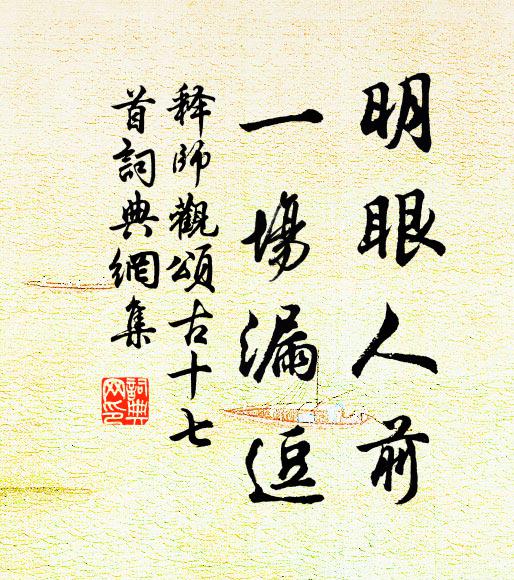 明眼人前
一場漏逗
释師觀頌古十七
首詞典網集
詞典
网印